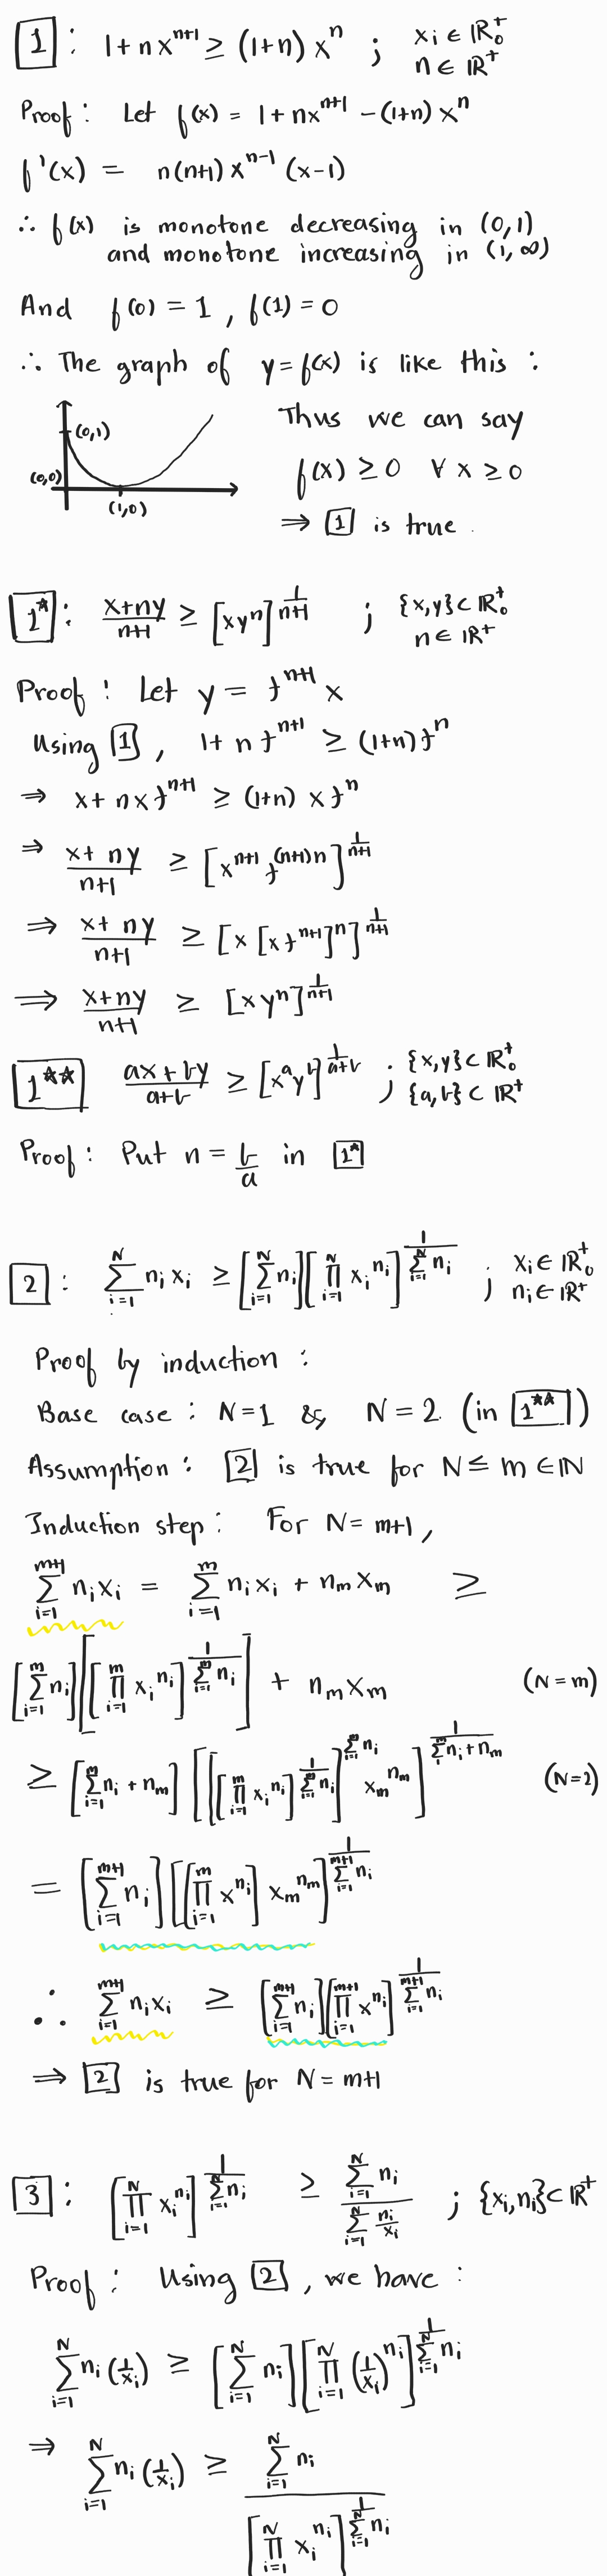 1 : 1+nx^{n+1} ≥ (1+n) x^n ; x_i ∈ ℝ_0^+
n ∈ ℝ^+
Proof : Let f(x) = 1+nx^{n+1} -(1+n) x^n
f'(x) = n(n+1) x^{n-1} (x-1)
∴ f(x) is monotone decreasing in (0,1)
and monotone increasing in (1,∞)
And f(0) = 1 , f(1) = 0
∴ The graph of y=f(x) is like this :
(0,1)
(0,0)
(1,0)
Thus we can say
f(x) ≥ 0 ∀ x ≥ 0
⇒ 1 is true .
1* : \frac{x+ny}{n+1} ≥ [xy^n]^{\frac{1}{n+1}} ; {x,y} ⊂ ℝ_0^+
n ∈ ℝ^+
Proof : Let y = t^{n+1} x
Using 1 , 1+ n t^{n+1} ≥ (1+n) t^n
⇒ x+ nx t^{n+1} ≥ (1+n) x t^n
⇒ \frac{x+ ny}{n+1} ≥ [x^{n+1} t^{(n+1)n}]^{\frac{1}{n+1}}
⇒ \frac{x+ ny}{n+1} ≥ [x [x t^{n+1}]^n]^{\frac{1}{n+1}}
⇒ \frac{x+ny}{n+1} ≥ [xy^n]^{\frac{1}{n+1}}
1** \frac{ax+by}{a+b} ≥ [x^a y^b]^{\frac{1}{a+b}} ; {x,y} ⊂ ℝ_0^+
{a,b} ⊂ ℝ^+
Proof : Put n = \frac{b}{a} in 1*
2 : \sum_{i=1}^{N} n_i x_i ≥ [\sum_{i=1}^{N} n_i][\prod_{i=1}^{N} x_i^{n_i}]^{\frac{1}{\sum_{i=1}^{N} n_i}} ; x_i ∈ ℝ_0^+
n_i ∈ ℝ^+
Proof by induction :
Base case : N=1 & N=2 (in 1**)
Assumption : 2 is true for N ≤ m ∈ ℕ
Induction step : For N= m+1,
\sum_{i=1}^{m+1} n_i x_i = \sum_{i=1}^{m} n_i x_i + n_m x_m ≥
[\sum_{i=1}^{m} n_i][[\prod_{i=1}^{m} x_i^{n_i}]^{\frac{1}{\sum_{i=1}^{m} n_i}}] + n_m x_m (N=m)
≥ [\sum_{i=1}^{m} n_i + n_m] [[[\prod_{i=1}^{m} x_i^{n_i}]^{\frac{1}{\sum_{i=1}^{m} n_i}}]^{\sum_{i=1}^{m} n_i} x_m^{n_m}]^{\frac{1}{\sum_{i}^{m} n_i + n_m}} (N=2)
= [\sum_{i=1}^{m+1} n_i] [[\prod_{i=1}^{m} x^{n_i}] x_m^{n_m}]^{\frac{1}{\sum_{i=1}^{m+1} n_i}}
∴ \sum_{i=1}^{m+1} n_i x_i ≥ [\sum_{i=1}^{m+1} n_i][\prod_{i=1}^{m+1} x^{n_i}]^{\frac{1}{\sum_{i=1}^{m+1} n_i}}
⇒ 2 is true for N= m+1
3 : [\prod_{i=1}^{N} x_i^{n_i}]^{\frac{1}{\sum_{i=1}^{N} n_i}} ≥ \frac{\sum_{i=1}^{N} n_i}{\sum_{i=1}^{N} \frac{n_i}{x_i}} ; {x_i,n_i} ⊂ ℝ^+
Proof : Using 2 , we have :
\sum_{i=1}^{N} n_i (\frac{1}{x_i}) ≥ [\sum_{i=1}^{N} n_i] [\prod_{i=1}^{N} (\frac{1}{x_i})^{n_i}]^{\frac{1}{\sum_{i=1}^{N} n_i}}
⇒ \sum_{i=1}^{N} n_i (\frac{1}{x_i}) ≥ \frac{\sum_{i=1}^{N} n_i}{[\prod_{i=1}^{N} x_i^{n_i}]^{\frac{1}{\sum_{i=1}^{N} n_i}}}